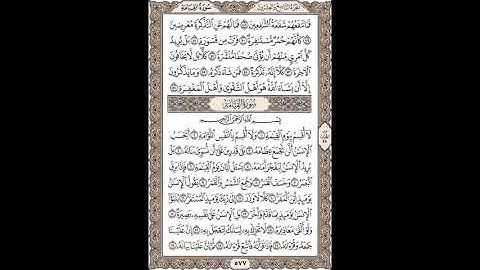 الجزء التاسع والعشرون سورة القيامة
فَمَا تَنفَعُهُمْ شَفَٰعَةُ ٱلشَّٰفِعِينَ ٤٨ فَمَا لَهُمْ عَنِ ٱلتَّذْكِرَةِ مُعْرِضِينَ
٤٩ كَأَنَّهُمْ حُمُرٌ مُّسْتَنفِرَةٌ ٥٠ فَرَّتْ مِن قَسْوَرَةٍ ٥١ بَلْ يُرِيدُ
كُلُّ ٱمْرِئٍ مِّنْهُمْ أَن يُؤْتَىٰ صُحُفًا مُّنَشَّرَةً ٥٢ كَلَّا بَل لَّا يَخَافُونَ
ٱلْءَاخِرَةَ ٥٣ كَلَّا إِنَّهُۥ تَذْكِرَةٌ ٥٤ فَمَن شَآءَ ذَكَرَهُۥ ٥٥ وَمَا يَذْكُرُونَ
إِلَّا أَن يَشَآءَ ٱللَّهُ هُوَ أَهْلُ ٱلتَّقْوَىٰ وَأَهْلُ ٱلْمَغْفِرَةِ ٥٦
سُورَةُ القِيَامَةِ
بِسْمِ ٱللَّهِ ٱلرَّحْمَٰنِ ٱلرَّحِيمِ
لَآ أُقْسِمُ بِيَوْمِ ٱلْقِيَٰمَةِ ١ وَلَآ أُقْسِمُ بِٱلنَّفْسِ ٱللَّوَّامَةِ ٢ أَيَحْسَبُ
ٱلْإِنسَٰنُ أَلَّن نَّجْمَعَ عِظَامَهُۥ ٣ بَلَىٰ قَٰدِرِينَ عَلَىٰٓ أَن نُّسَوِّىَ بَنَانَهُۥ ٤ بَلْ
يُرِيدُ ٱلْإِنسَٰنُ لِيَفْجُرَ أَمَامَهُۥ ٥ يَسْـَٔلُ أَيَّانَ يَوْمُ ٱلْقِيَٰمَةِ ٦ فَإِذَا بَرِقَ
ٱلْبَصَرُ ٧ وَخَسَفَ ٱلْقَمَرُ ٨ وَجُمِعَ ٱلشَّمْسُ وَٱلْقَمَرُ ٩ يَقُولُ ٱلْإِنسَٰنُ
يَوْمَئِذٍ أَيْنَ ٱلْمَفَرُّ ١٠ كَلَّا لَا وَزَرَ ١١ إِلَىٰ رَبِّكَ يَوْمَئِذٍ ٱلْمُسْتَقَرُّ ١٢ يُنَبَّؤُا۟
ٱلْإِنسَٰنُ يَوْمَئِذٍۭ بِمَا قَدَّمَ وَأَخَّرَ ١٣ بَلِ ٱلْإِنسَٰنُ عَلَىٰ نَفْسِهِۦ بَصِيرَةٌ ١٤
وَلَوْ أَلْقَىٰ مَعَاذِيرَهُۥ ١٥ لَا تُحَرِّكْ بِهِۦ لِسَانَكَ لِتَعْجَلَ بِهِۦٓ ١٦ إِنَّ عَلَيْنَا
جَمْعَهُۥ وَقُرْءَانَهُۥ ١٧ فَإِذَا قَرَأْنَٰهُ فَٱتَّبِعْ قُرْءَانَهُۥ ١٨ ثُمَّ إِنَّ عَلَيْنَا بَيَانَهُۥ ١٩
٥٧٧